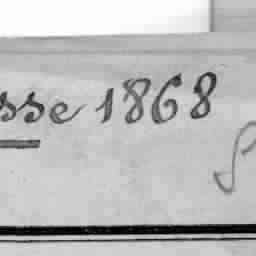 sse 1868